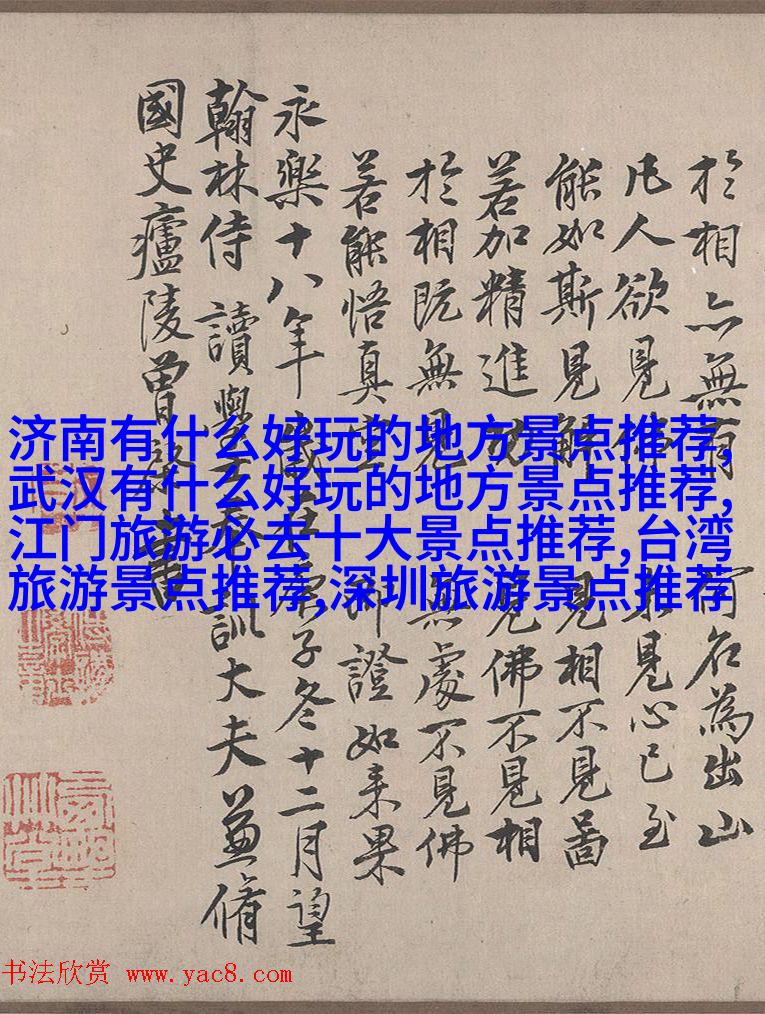 於相亦無有 名為出山
凡人欲見佛 見心已至
能如斯見解 見相不見啚
若加精進 見佛不見相
於相既無見 無處不見佛
若能悟真空 即證如来果
永樂十八年歲在庚子冬十二月望
翰林侍讀 訓大夫兼脩
國史廬陵曾棨書
济南有什么好玩的地方景点推荐,
武汉有什么好玩的地方景点推荐,
江门旅游必去十大景点推荐,台湾
旅游景点推荐,深圳旅游景点推荐
书法欣赏 www.yac8.com